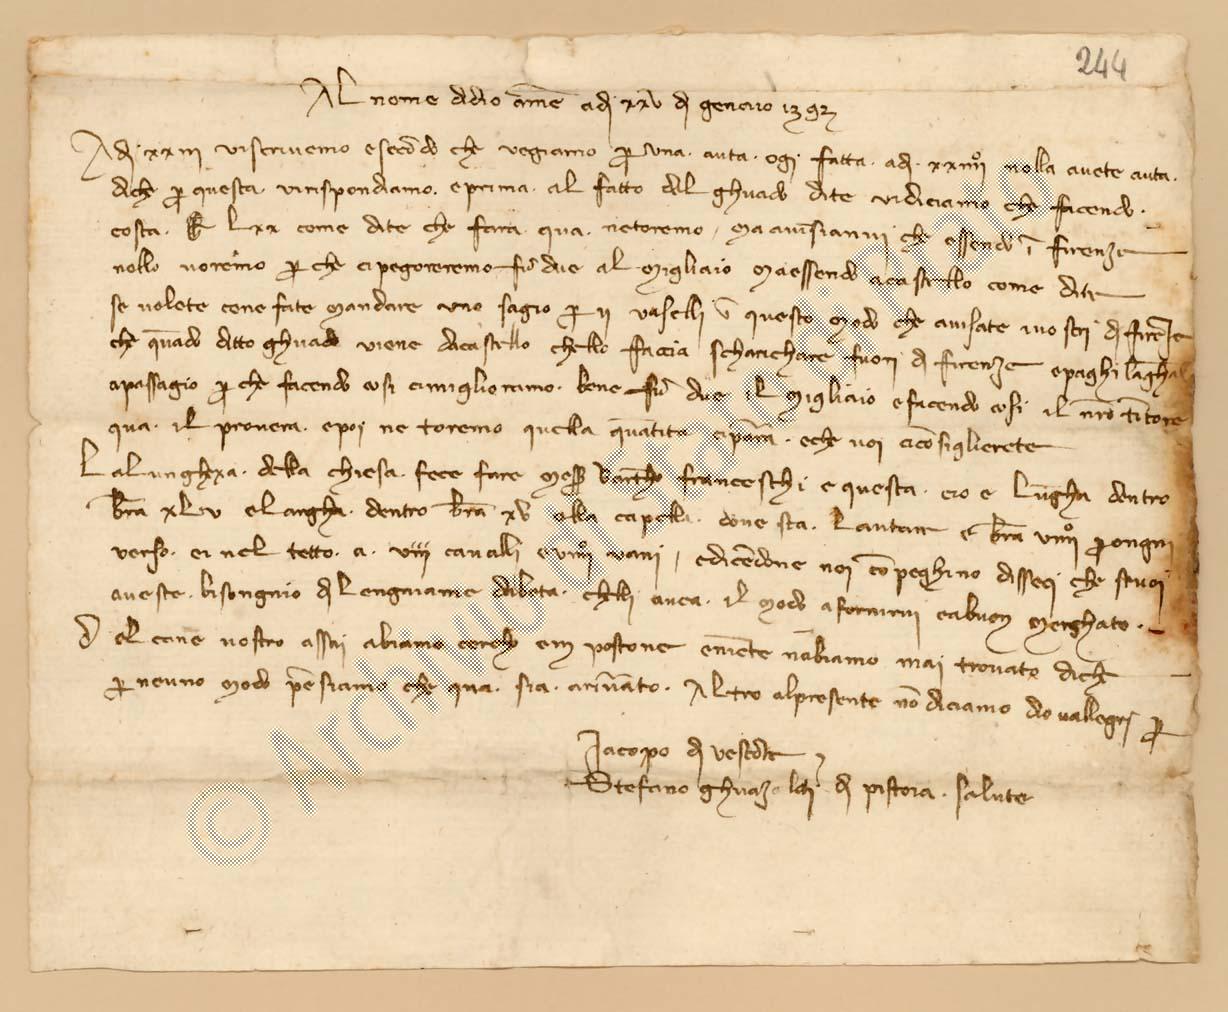 244
Al nome di dio ame adi xxv di genaio 1392
Adi xxiii viscrivemo e secõdo che vegiamo p una avta ogi fatta adi xxiiiiº nolla avete avta
diche p questa virispondiamo e prima al fatto del ghuado dite vidiciamo che facendo
costa lxx come dite che fara qua ne toremo ma avisianvi che essendo ĩ firenze
nollo voremo p che ci pegoreremo fi due al migliaio ma essendo a castello come dite
se volete cene fate mandare uno sagio p ii vaselli ĩ questo modo che avisate i vostri di firẽze
che quãdo ditto ghuado viene di castello chello faccia scharichare fuori di firenze e paghi
a passagio p che facendo cosi ci miglioramo bene fi due il migliaio e facendo cosi il nro tĩtore
qua il provera e poi ne toremo quella quãtita ci parra e che voi ci cõsiglierete
La lunghexa della chiesa fece fare mess franceschi e questa cio e lũgha dentro
bra xlv e largha dentro bra xv e lla capella dove sta l altare e bra viiiiº p ongni
verso ei nel tetto a viiii cavalli e viiiiº vani e dicẽdone noi cõ peghino disseci che se voi
aveste bisongnio di lengniame d abeta chelli avea il modo a fornirvi e a buon merghato
Del cane vostro assai abiamo cercho e niẽte nõ abiamo mai trovato diche
p neuno modo pẽsiamo che qua sia arivato Altro al presente nõ diciamo dio vallegri p
Iacopo di
Stefano ghuazaloti di pistoia salute
© Archivio di Stato di Prato